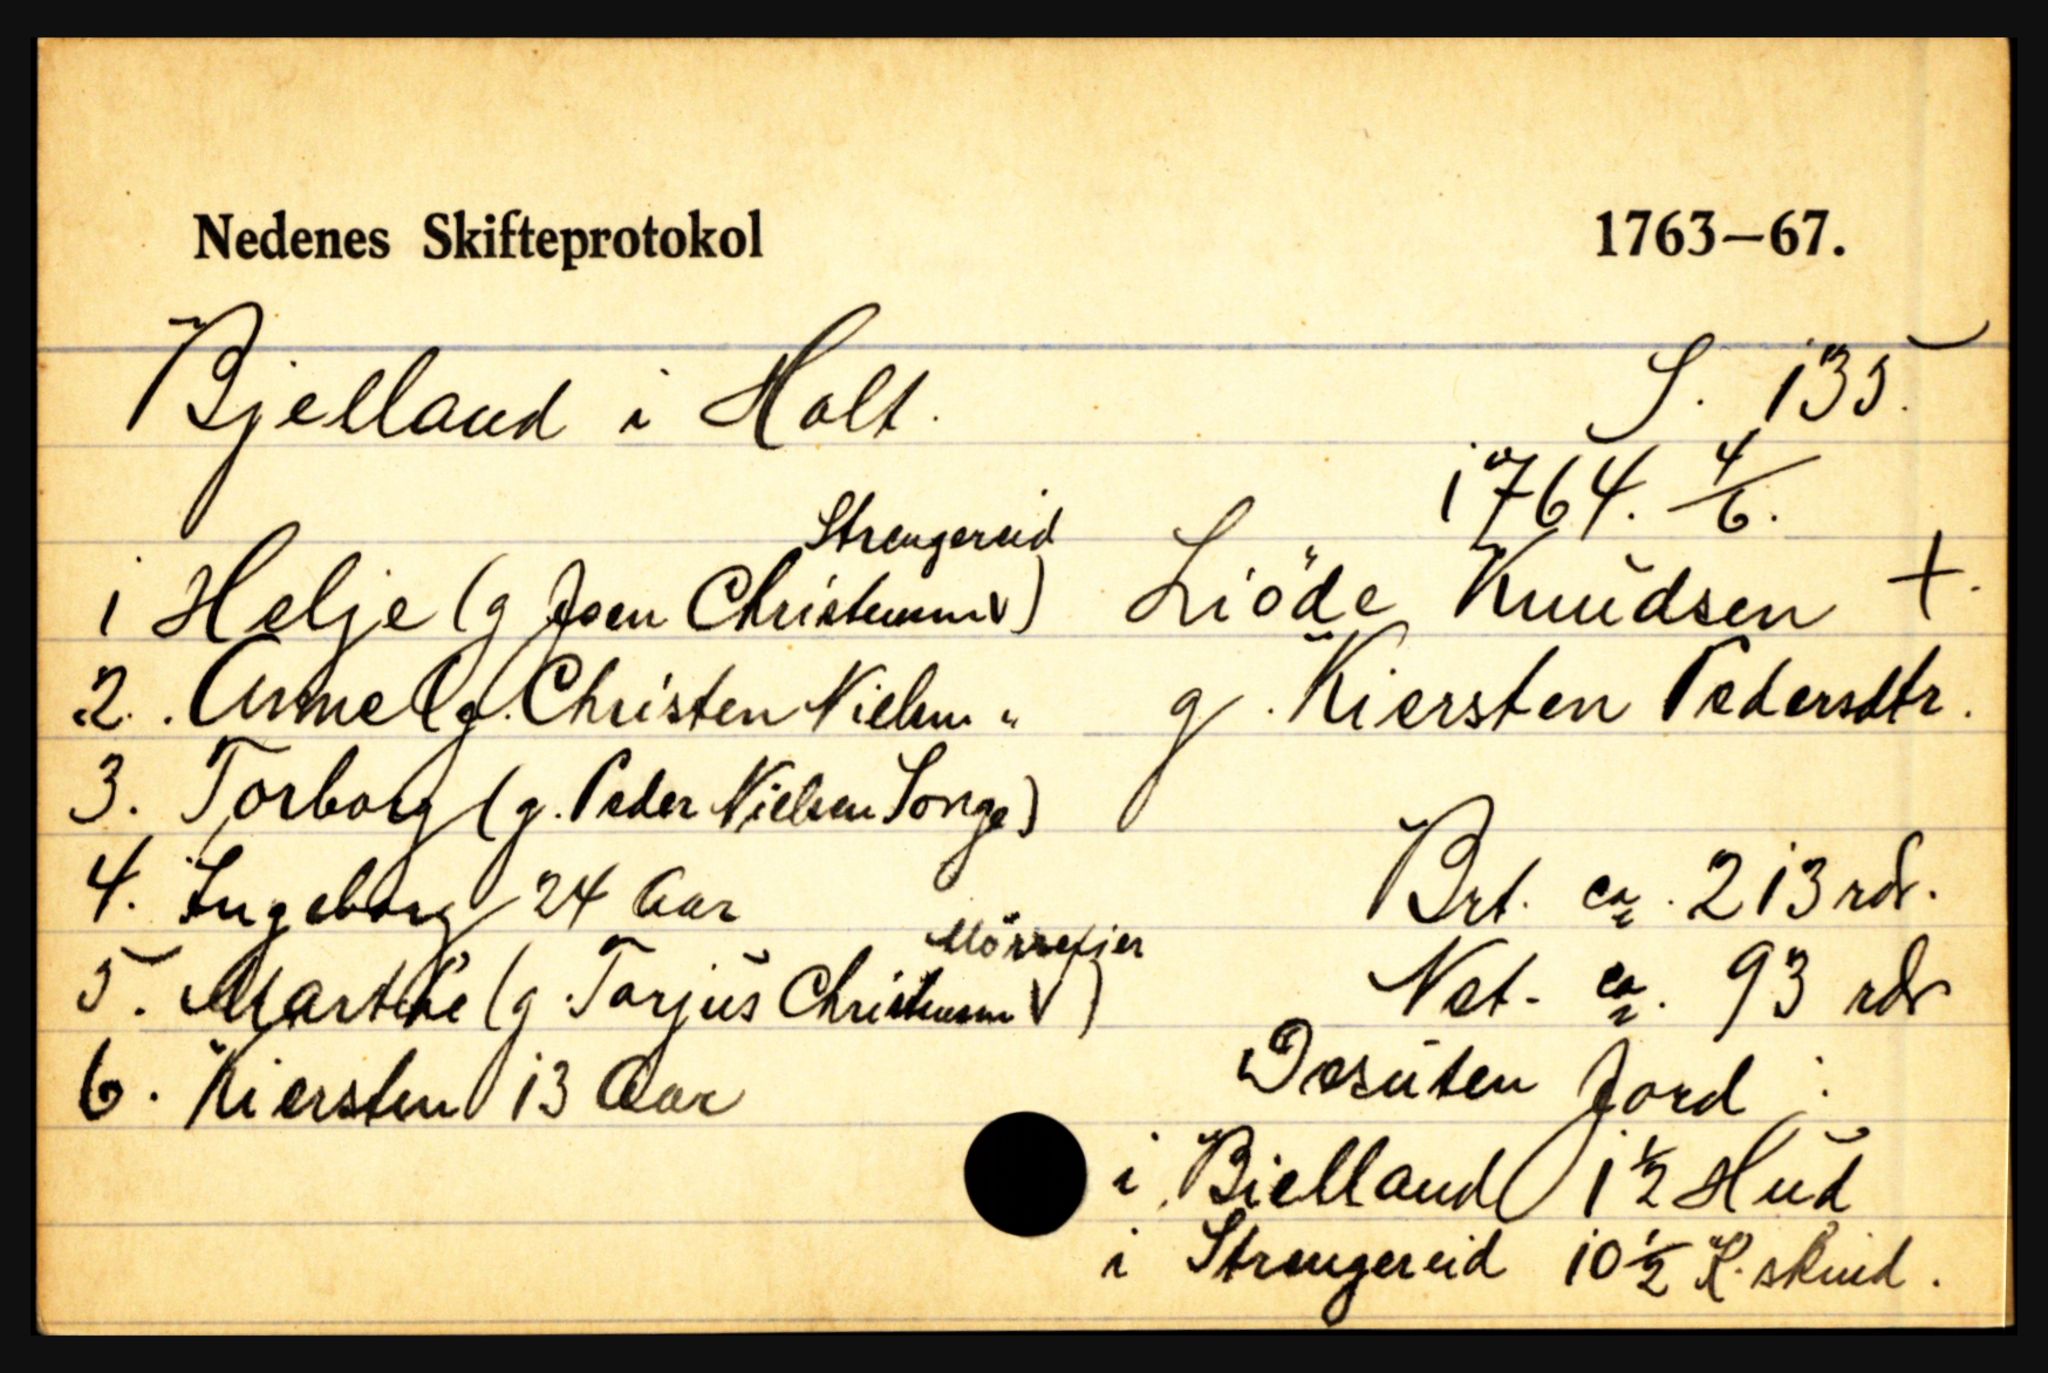 Nedenes Skifteprotokol 1763—67.
Bjelland i Holt. S. 135.
1764. 4/6.
Liöde Knudsen +.
g. Kiersten Pedersdtr.
1 Helje (g Joen Christensen Strengereid)
2. Anne (g. Christen Nielsen "
3. Torborg (g. Peder Nielsen Songe)
4. Ingeborg 24 Aar
5. Marthe (g. Torjus Christensen Mörrefjer)
6. Kiersten 13 Aar
Brt. ca. 213 rdr.
Net. ca. 93 rdr
Desuten Jord:
i Bielland 1 1/2 Hud
i Strengereid 10 1/2 K. skind.